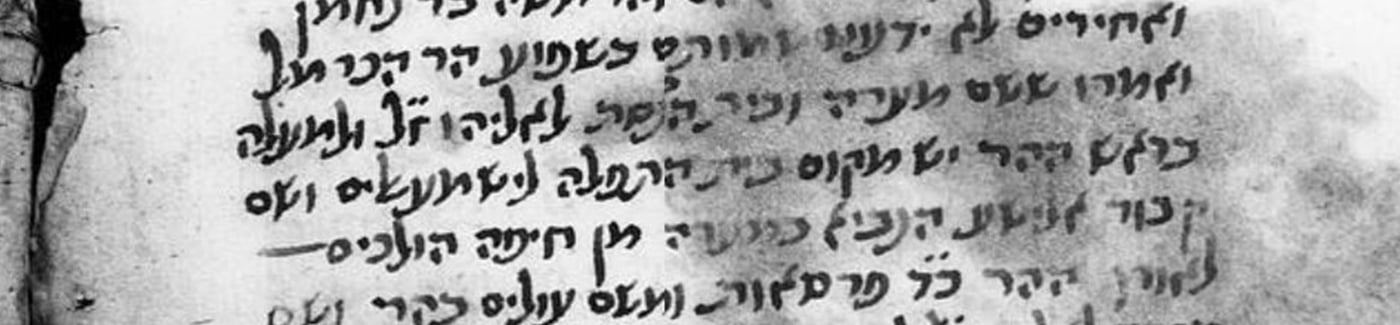 נחמן
ואחירים לא ידענו שמותם בשפוע הר הכרמל
ואמרו ששם מערה ובית הכנסת לאליהו ז״ל ולמעלה
בראש ההר יש מקום בית התפלה לישמעאלים ושם
קבור אלישע הנביא במערה מן חיפה הולכים
לאורך ההר כ״ד פרסאות ומשם עולים בהר ושם